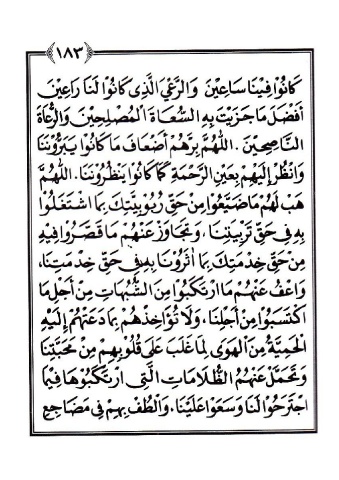 ١٨٣
كَانُوْا فِيْنَا سَاعِيْنَ وَالرَّعْيِ الَّذِى كَانُوْا لَنَا رَاعِيْنَ
أَفْضَلَ مَا جَزَيْتَ بِهِ السُّعَاةَ الْمُصْلِحِيْنَ وَالرُّعَاةَ
النَّاصِحِيْنَ. اَللّٰهُمَّ بِرَّهُمْ أَضْعَافَ مَا كَانُوْا يَبَرُّوْنَنَا
وَانْظُرْ إِلَيْهِمْ بِعَيْنِ الرَّحْمَةِ كَمَا كَانُوْا يَنْظُرُوْنَنَا. اَللّٰهُمَّ
هَبْ لَهُمْ مَا ضَيَّعُوْا مِنْ حَقِّ رُبُوْبِيَّتِكَ بِمَا اشْتَغَلُوْا
بِهِ فِى حَقِّ تَرْبِيَتِنَا، وَتَجَاوَزْ عَنْهُمْ مَا قَصَّرُوْا فِيْهِ
مِنْ حَقِّ خِدْمَتِكَ بِمَا أٰثَرُوْنَا بِهِ فِى حَقِّ خِدْمَتِنَا،
وَاعْفُ عَنْهُمْ مَا ارْتَكَبُوْا مِنَ الشُّبُهَاتِ مِنْ أَجْلِ مَا
اكْتَسَبُوْا مِنْ أَجْلِنَا، وَلَا تُؤَاخِذْهُمْ بِمَا دَعَتْهُمْ إِلَيْهِ
الْحَمِيَّةُ مِنَ الْهَوٰى لِمَا غَلَبَ عَلَى قُلُوْبِهِمْ مِنْ مَحَبَّتِنَا
وَتَحَمَّلْ عَنْهُمُ الظُّلَامَاتِ الَّتِى ارْتَكَبُوْهَا فِيْمَا
اجْتَرَحُوْا لَنَا وَسَعَوْا عَلَيْنَا، وَالْطُفْ بِهِمْ فِى مَضَاجِعِ